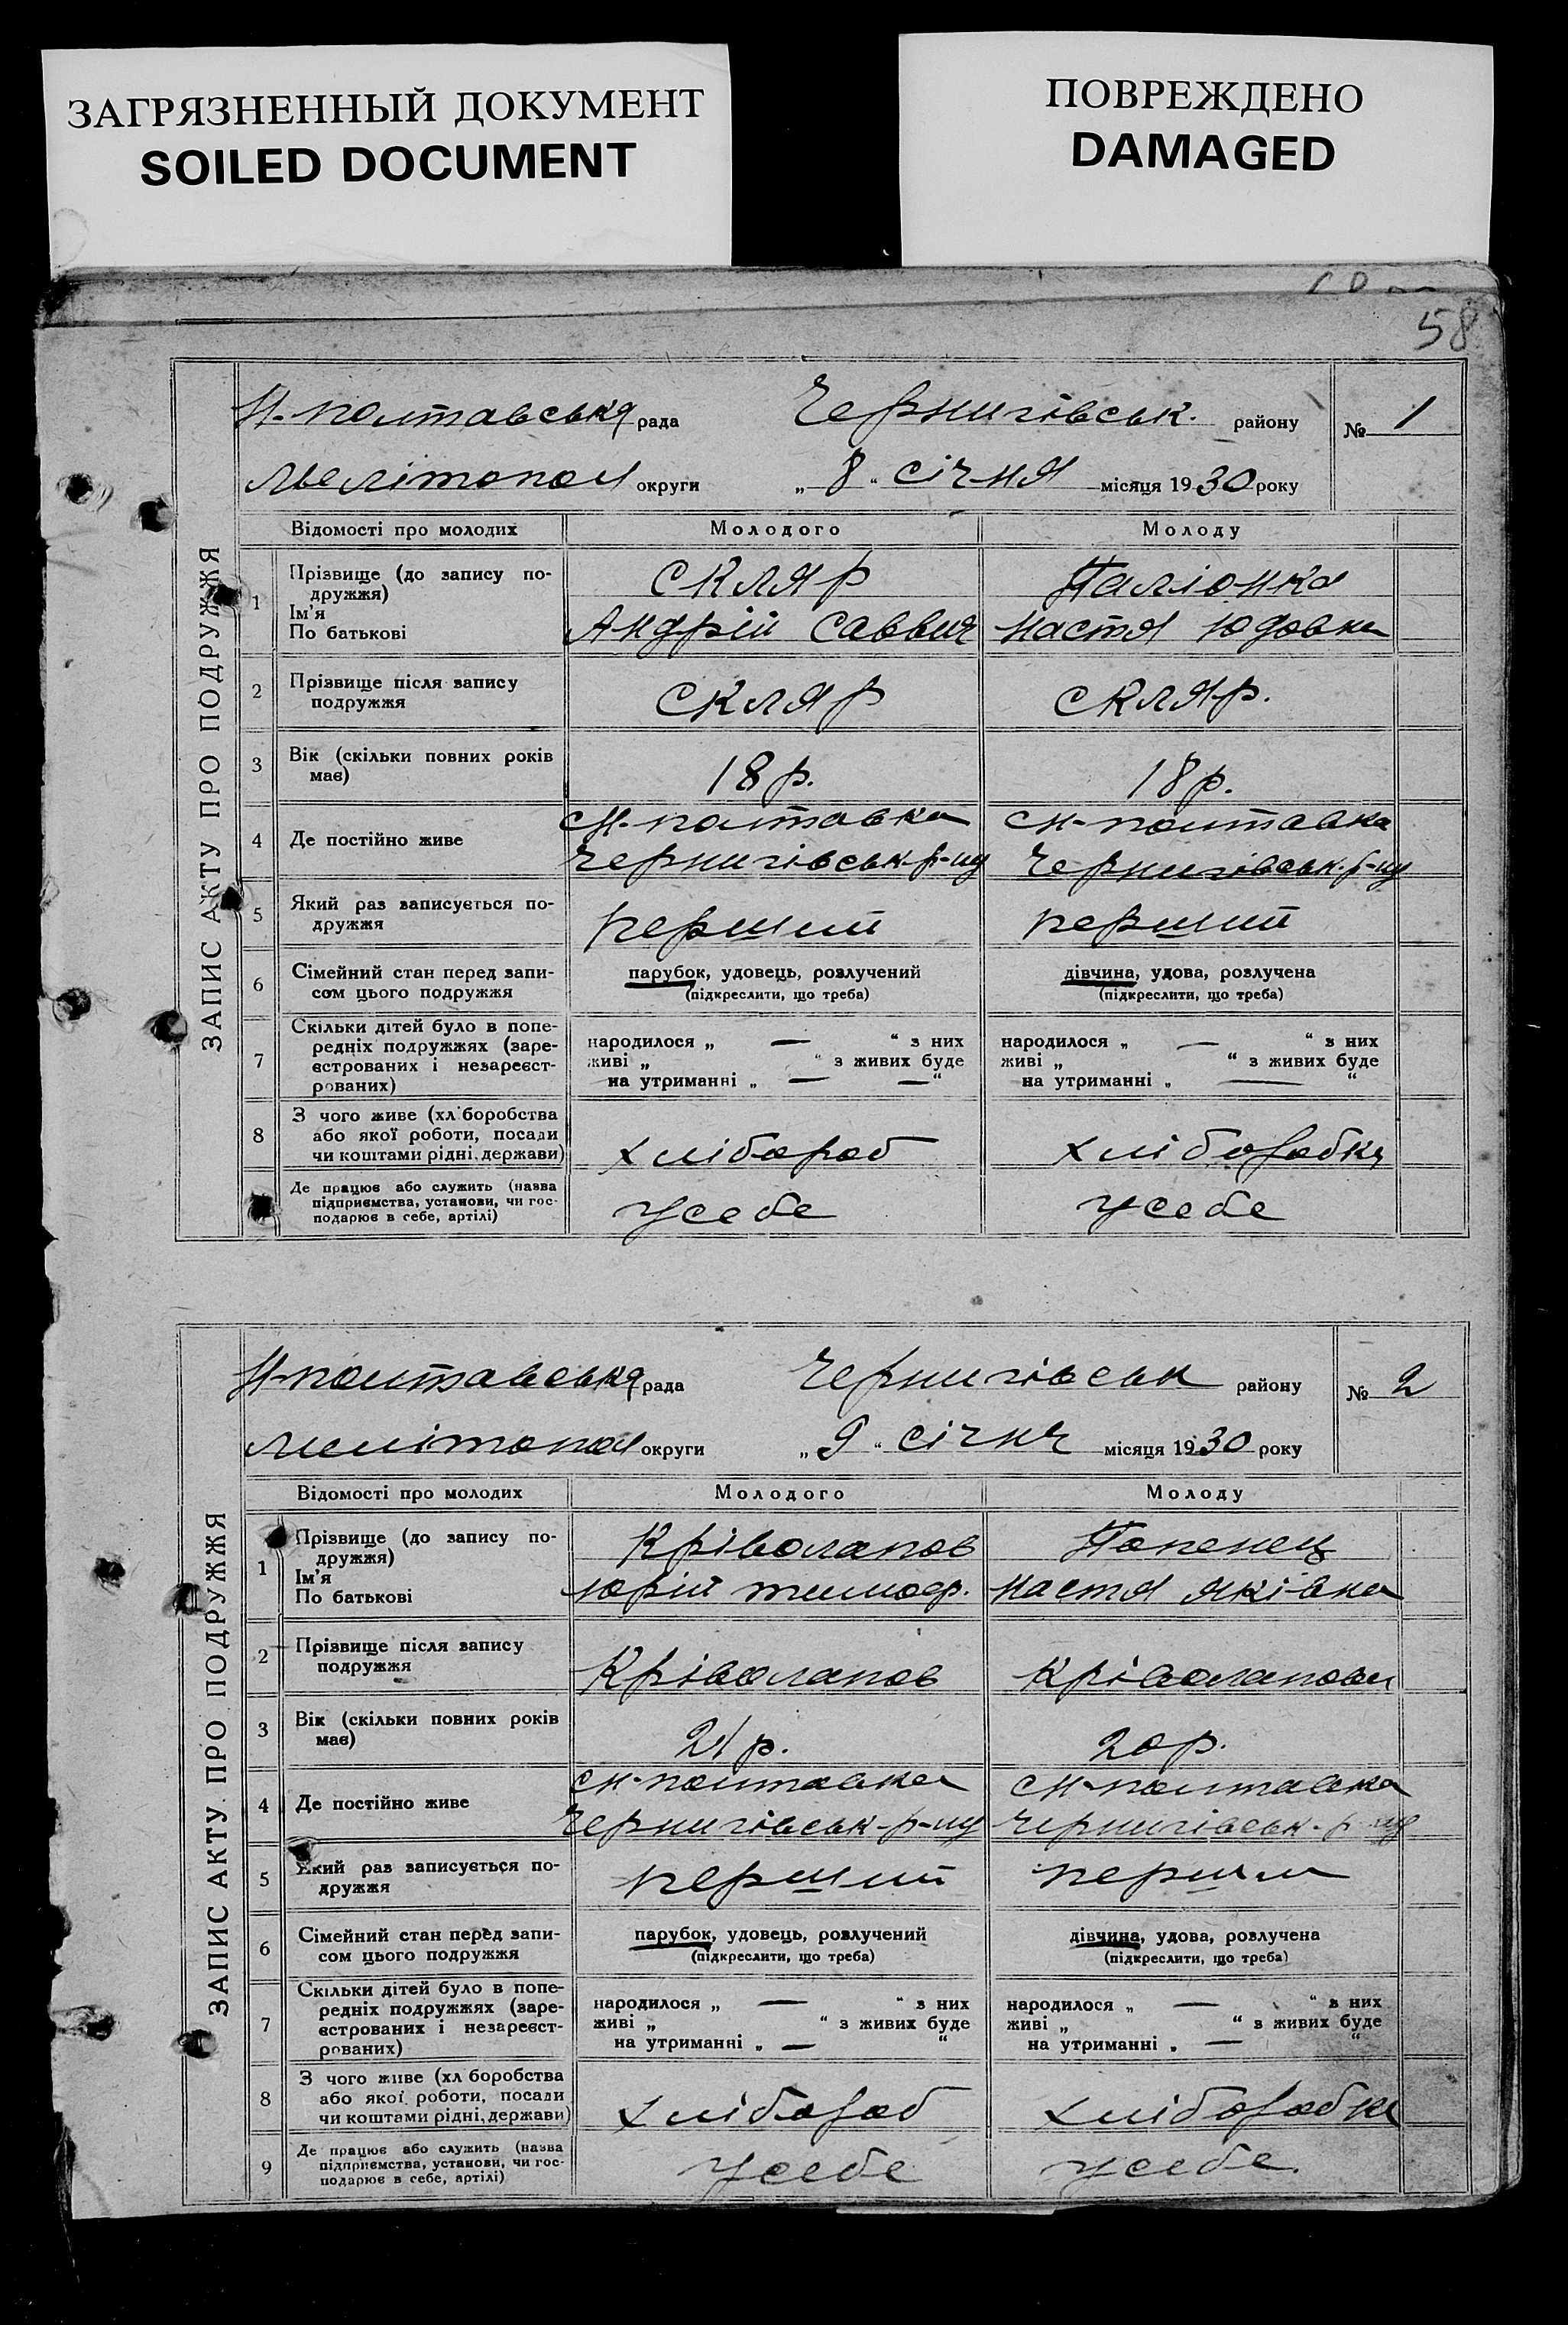 ЗАГРЯЗНЕННЫЙ ДОКУМЕНТ
SOILED DOCUMENT
ПОВРЕЖДЕНО
DAMAGED
58
ЗАПИС АКТУ ПРО ПОДРУЖЖЯ
Н-полтавська рада Чернигівськ. району № 1
Мелітопол округи „ 8 “ січня місяця 1930 року
Відомості про молодих Молодого Молоду
1 Прізвище (до запису по-
дружжя) Скляр Паліонка
Ім'я
По батькові Андрій Саввич Настя Юдовна
2 Прізвище після запису
подружжя Скляр Скляр.
3 Вік (скільки повних років
має) 18 р. 18 р.
4 Де постійно живе с Н-полтавка с Н-полтавка
Чернигівськ-р-ну Чернигівськ-р-ну
5 Який раз записується по-
дружжя перший перший
6 Сімейний стан перед запи-
сом цього подружжя
парубок, удовець, розлучений дівчина, удова, розлучена
(підкреслити, що треба) (підкреслити, що треба)
7 Скільки дітей було в попе-
редніх подружжях (заре-
єстрованих і незареєст-
рованих)
народилося „ — “ з них народилося „ — “ з них
живі „ “ з живих буде живі „ “ з живих буде
на утриманні „ — —“ на утриманні „ — “
8 З чого живе (хліборобства
або якої роботи, посади
чи коштами рідні, держави) хлібороб хліборобка
Де працює або служить (назва
підприємства, установи, чи гос-
подарює в себе, артілі) у себе у себе
ЗАПИС АКТУ ПРО ПОДРУЖЖЯ
Н-полтавська рада Чернигівськ району № 2
Мелітопол округи „ 9 “ січня місяця 1930 року
Відомості про молодих Молодого Молоду
1 Прізвище (до запису по-
дружжя) Кріволапов Попенец
Ім'я
По батькові Юрій тимоф. Настя Яківна
2 Прізвище після запису
подружжя Кріволапов Кріволапова
3 Вік (скільки повних років
має) 21 р. 20 р.
4 Де постійно живе с Н-полтавка с Н-полтавка
Чернигівськ-р-ну Чернигівськ-р-ну
5 Який раз записується по-
дружжя перший перши
6 Сімейний стан перед запи-
сом цього подружжя
парубок, удовець, розлучений дівчина, удова, розлучена
(підкреслити, що треба) (підкреслити, що треба)
7 Скільки дітей було в попе-
редніх подружжях (заре-
єстрованих і незареєст-
рованих)
народилося „ — “ з них народилося „ — “ з них
живі „ “ з живих буде живі „ “ з живих буде
на утриманні „ — “ на утриманні „ — “
8 З чого живе (хліборобства
або якої роботи, посади
чи коштами рідні, держави) хлібороб хліборобка
9 Де працює або служить (назва
підприємства, установи, чи гос-
подарює в себе, артілі) у себе у себе.